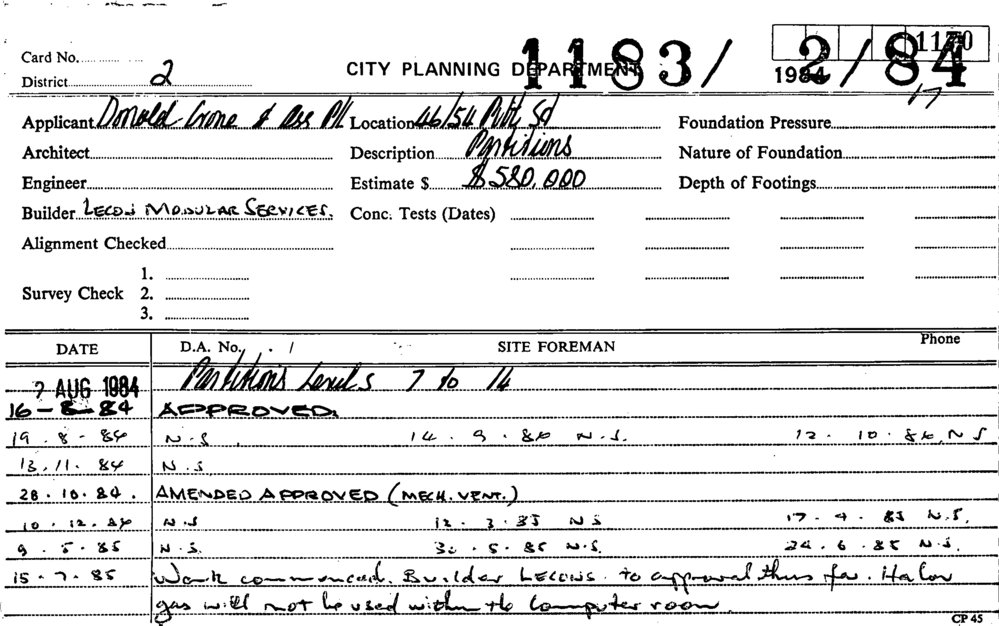 1170
Card No.
CITY PLANNING DEPARTMENT
1183/ 2/84
1984
District 2
17
Applicant Donald Crone & Ass P/L Location 46/54 Pitt St Foundation Pressure
Architect Description Partitions Nature of Foundation
Engineer Estimate $ $580,000 Depth of Footings
Builder LECON MODULAR SERVICES. Conc. Tests (Dates)
Alignment Checked
1.
Survey Check 2.
3.
DATE D.A. No. / SITE FOREMAN Phone
7 AUG 1984 Partitions Levels 7 to 14
16-8-84 APPROVED.
19.8.84 N.S. 14.9.84 N.S. 12.10.84 N S
13.11.84 N.S
28.10.84. AMENDED APPROVED (MECH. VENT.)
10.12.84 N.S 12.3.85 N S 17.4.85 N.S.
9.5.85 N.S. 30.5.85 N.S. 24.6.85 N.S.
15.7.85 Work commenced. Builder LECONS. to approval thus far. Halon
gas will not be used within the computer room.
CP 45